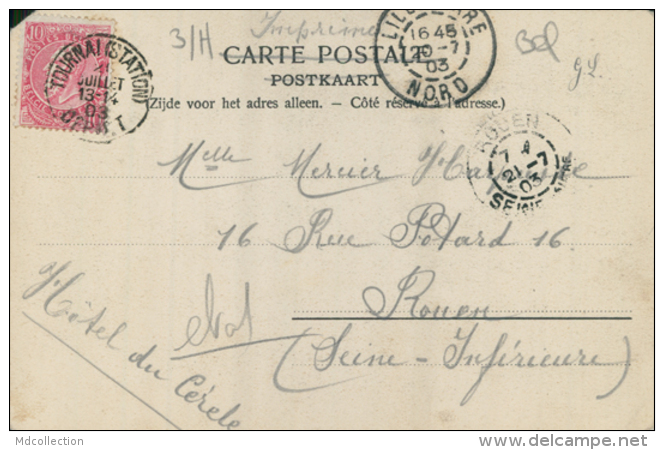 10
TOURNAI (STATION)
JUILLET
13-14
03
3/H
Imprimé
CARTE POSTALE
POSTKAART
(Zijde voor het adres alleen. – Côté réservé à l'adresse.)
LILLE GARE
16 45
10-7
03
NORD
Bel
G L.
ROUEN
7
21-7
03
SEINE
Melle Mercier
16 Rue Potard 16
Rouen
(Seine-Inférieure)
Hôtel du Cérele
Mdcollection
www.delcampe.net